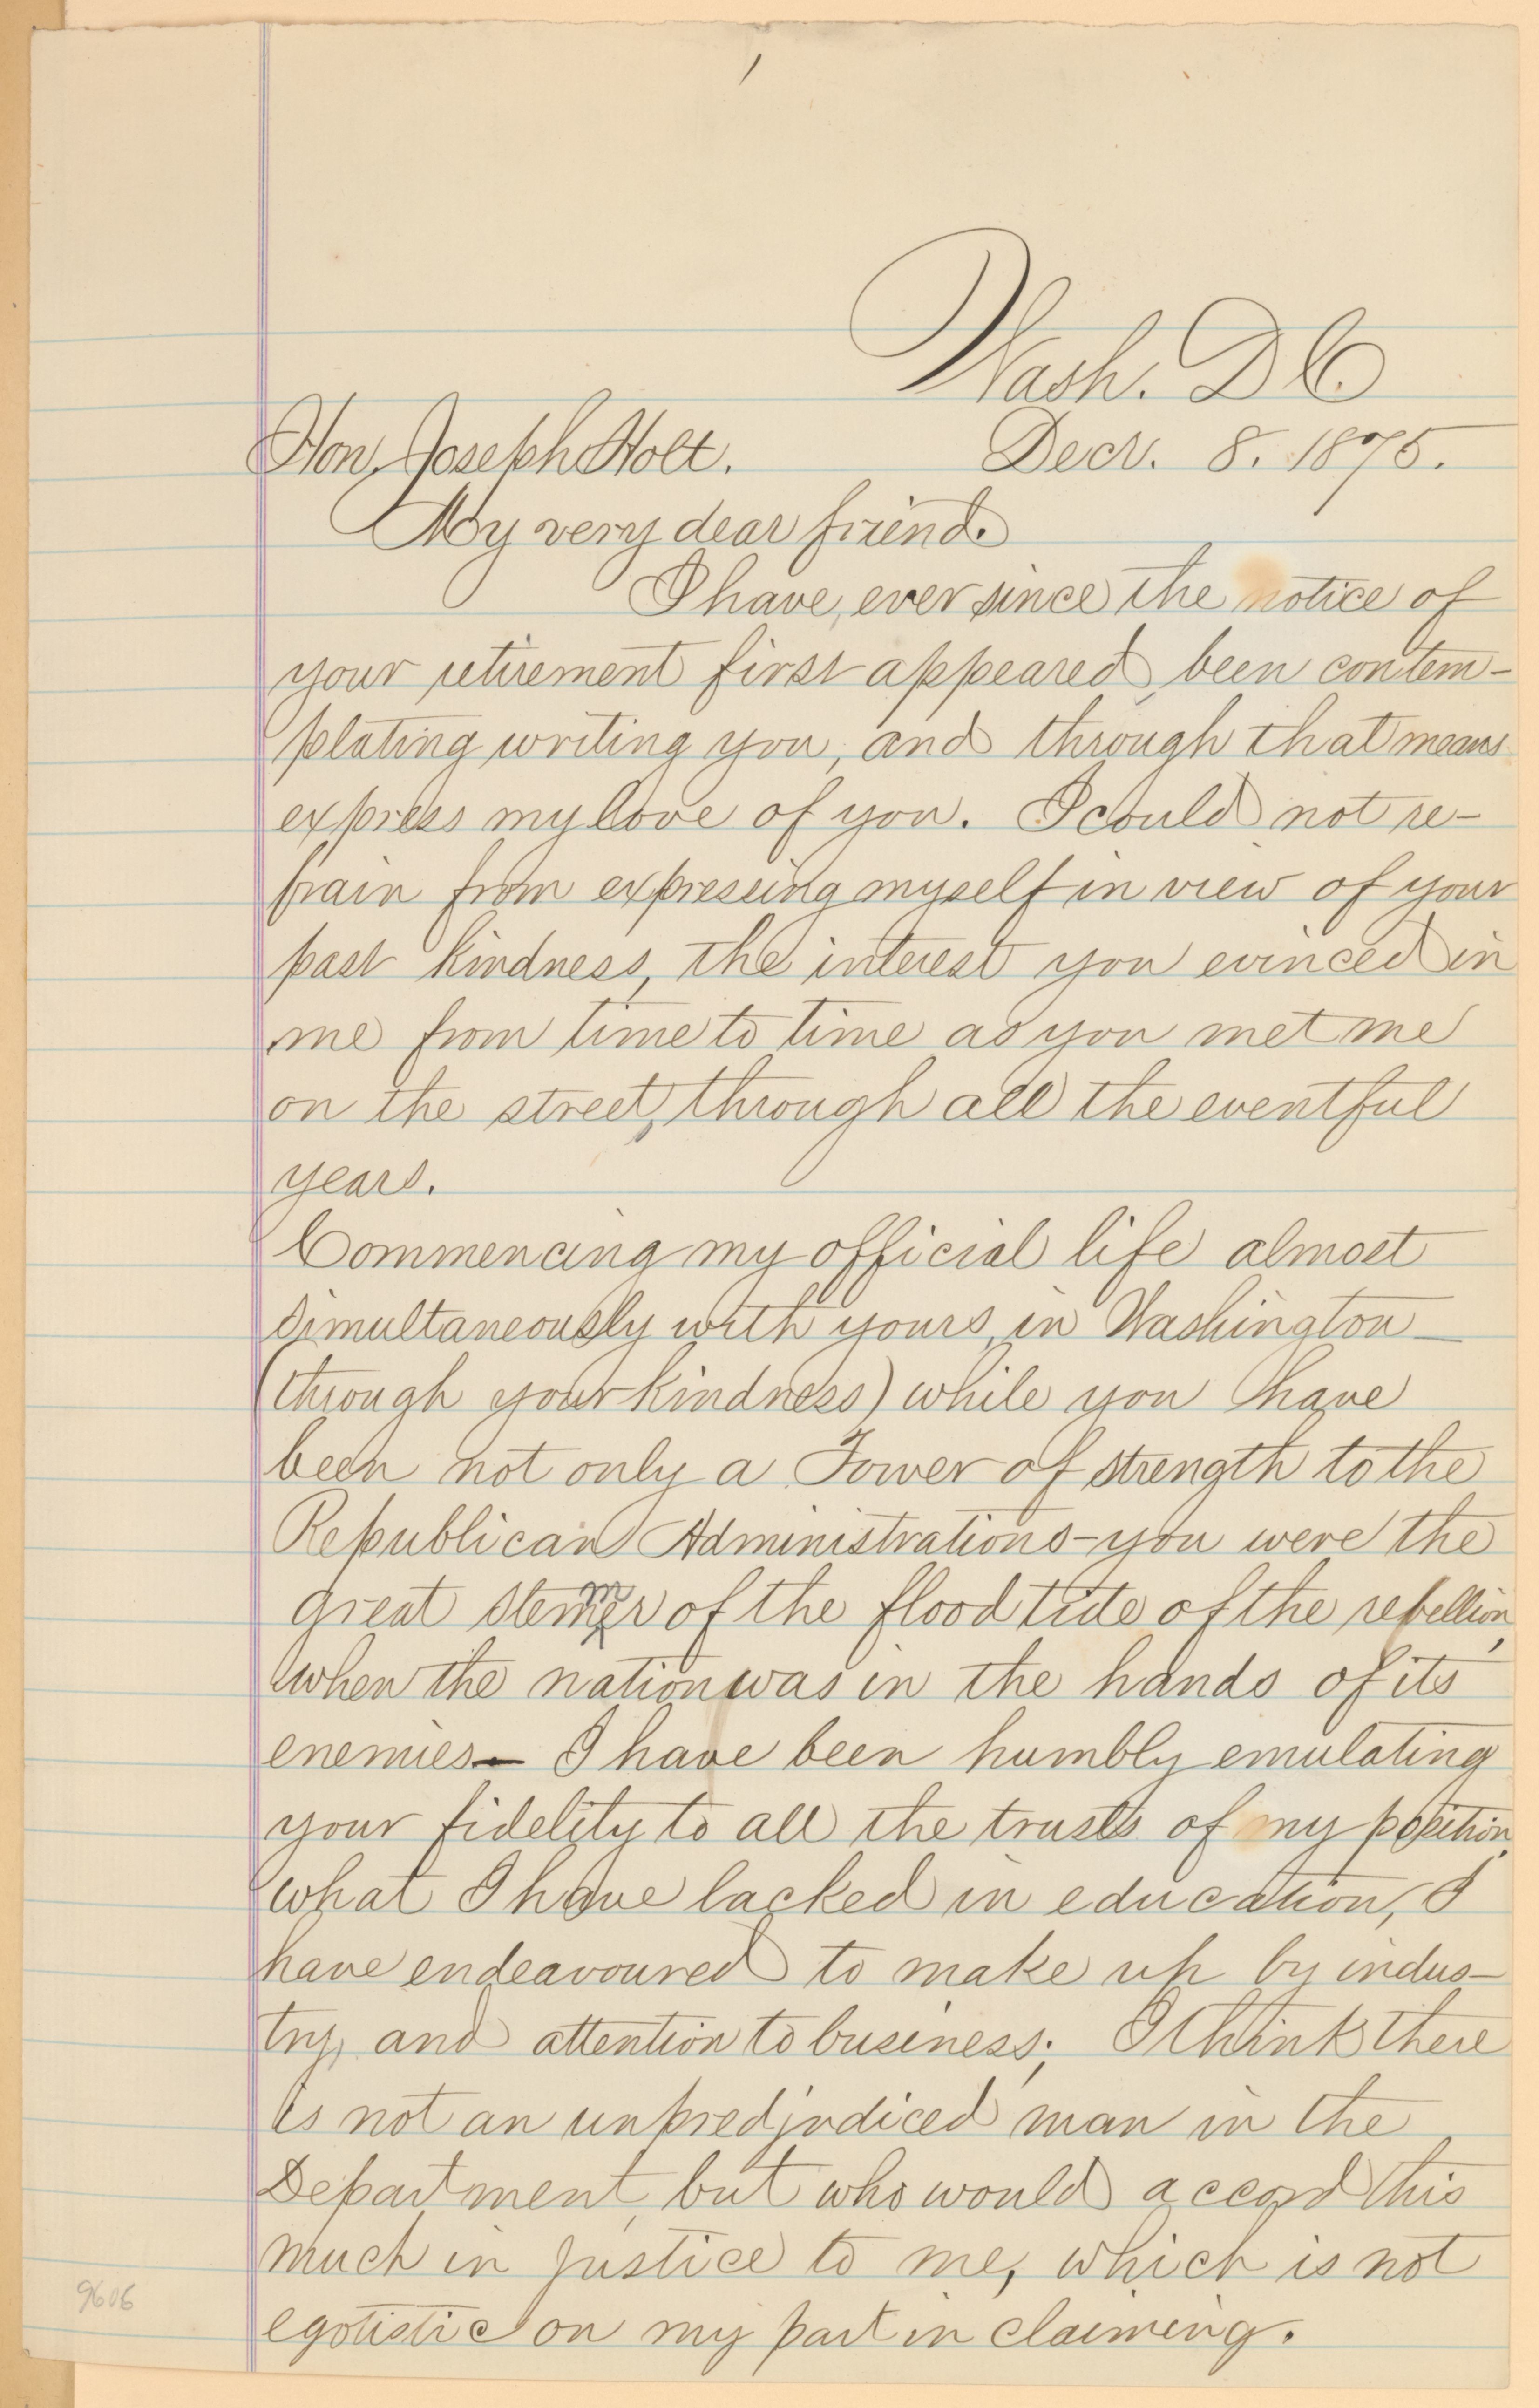 1
Wash. D C.
Hon. Joseph Holt. Decr. 8. 1875.
My very dear friend.
I have, ever since the notice of
your retirement first appeared, been contem-
plating writing you, and through that means
express my love of you. I could not re-
frain from expressing myself in view of your
past kindness, the interest you evinced in
me from time to time as you met me
on the street, through all the eventful
years.
Commencing my official life almost
simultaneously with yours, in Washington—
(through your kindness) while you have
been not only a Tower of strength to the
Republican Administrations—you were the
great stemmer of the flood tide of the rebellion,
when the nation was in the hands of its
enemies— I have been humbly emulating
your fidelity to all the trusts of my position,
what I have lacked in education, I
have endeavoured to make up by indus-
try, and attention to business; I think there
is not an unpredjudiced man in the
Department, but who would accord this
much in justice to me, which is not
egotistic on my part in claiming.
9606